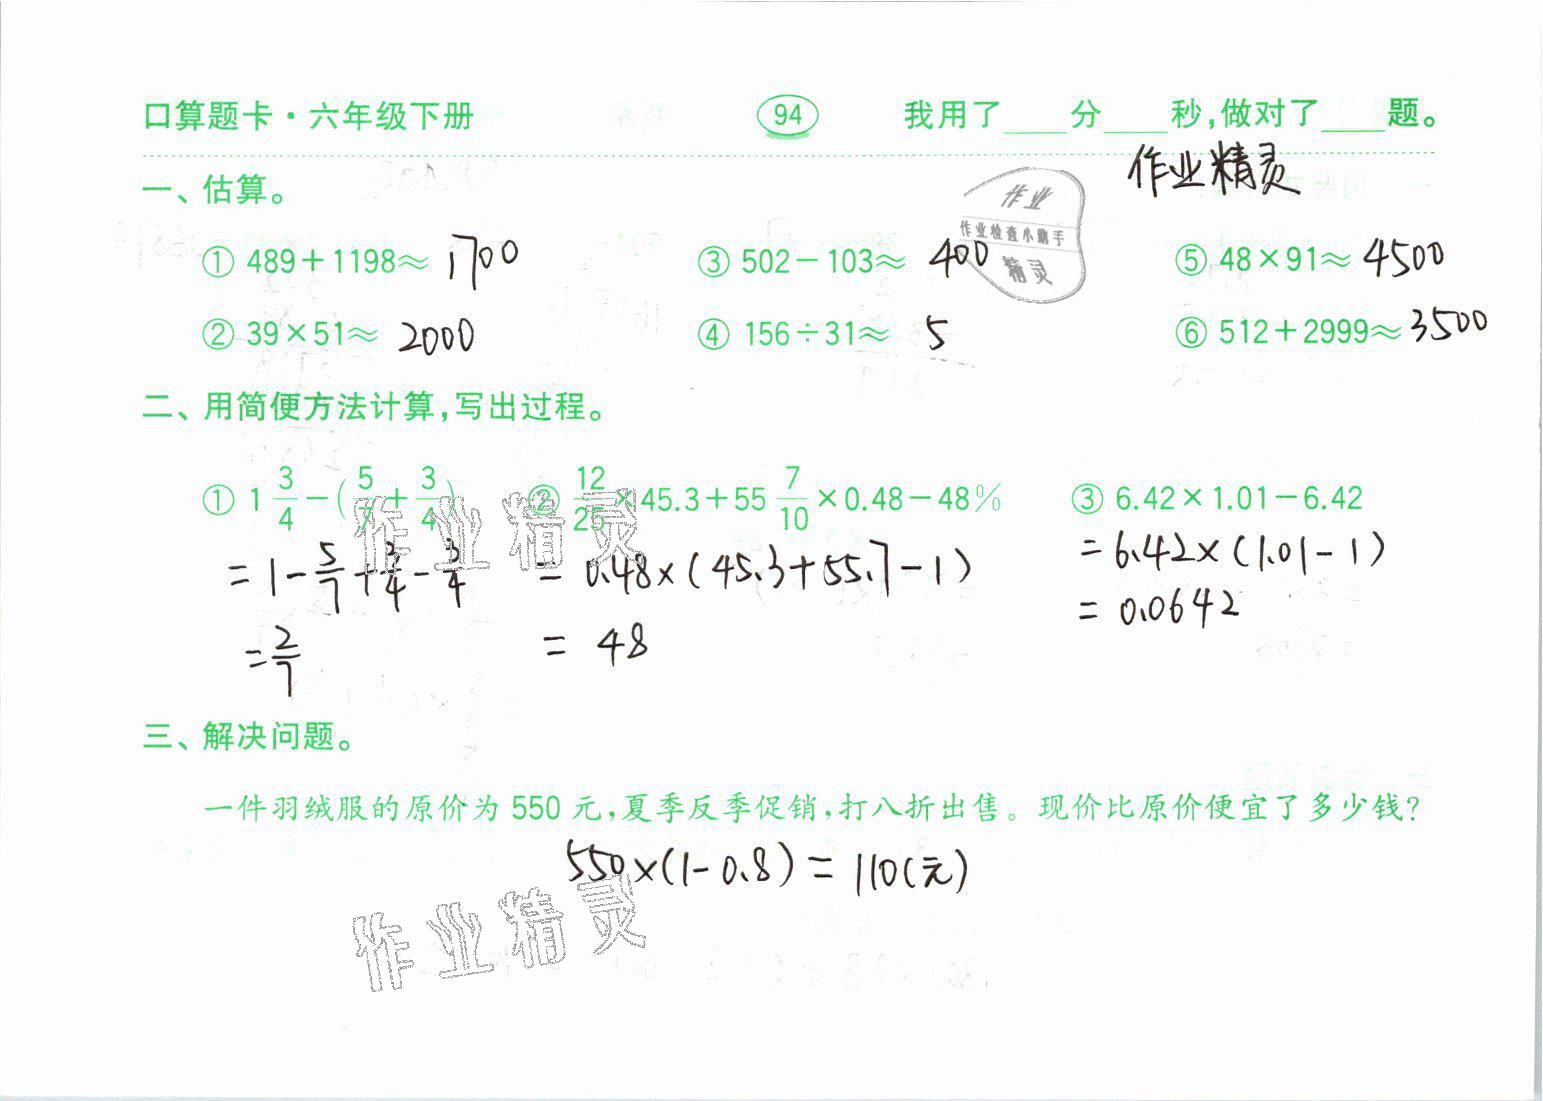 口算题卡·六年级下册 94 我用了____分____秒,做对了____题。
作业精灵
一、估算。
作业
作业检查小助手
精灵
① 489+1198≈ 1700 ③ 502-103≈ 400 ⑤ 48×91≈ 4500
② 39×51≈ 2000 ④ 156÷31≈ 5 ⑥ 512+2999≈ 3500
二、用简便方法计算,写出过程。
① 1 3/4 -(5/7+3/4) ② 12/25×45.3+55 7/10×0.48-48% ③ 6.42×1.01-6.42
作业精灵
=1-5/7+3/4-3/4 =0.48×(45.3+55.7-1) =6.42×(1.01-1)
=2/7 =48 =0.0642
三、解决问题。
一件羽绒服的原价为550元,夏季反季促销,打八折出售。现价比原价便宜了多少钱?
550×(1-0.8)=110(元)
作业精灵